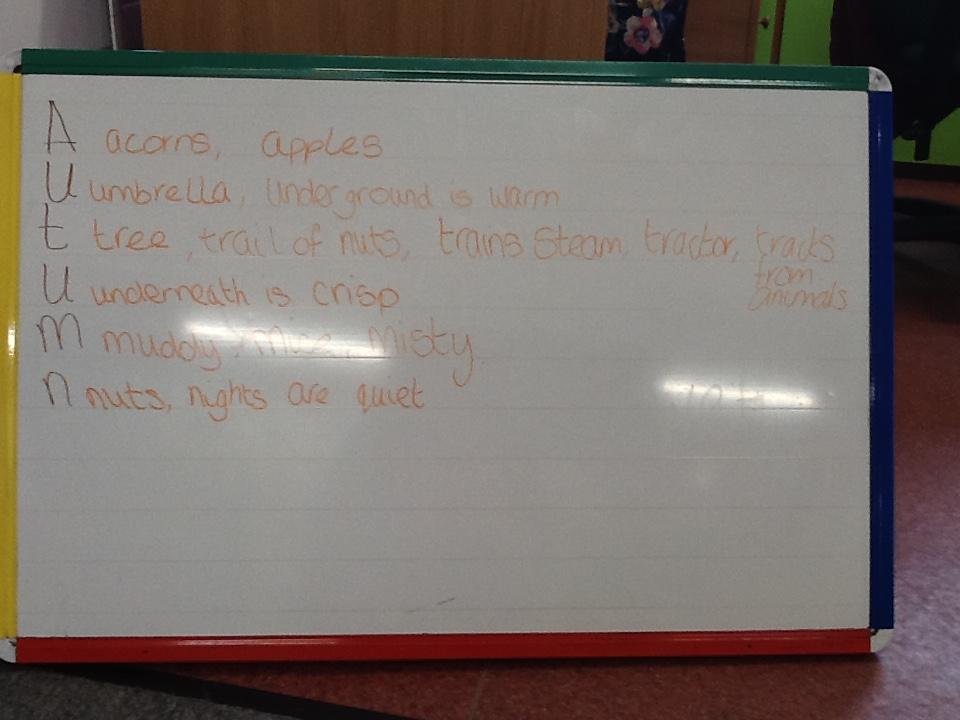 A acorns, apples
U umbrella, underground is warm
t tree, trail of nuts, trains steam, tractor, tracks
from
animals
U underneath is crisp
M muddy, mice, Misty
n nuts, nights are quiet